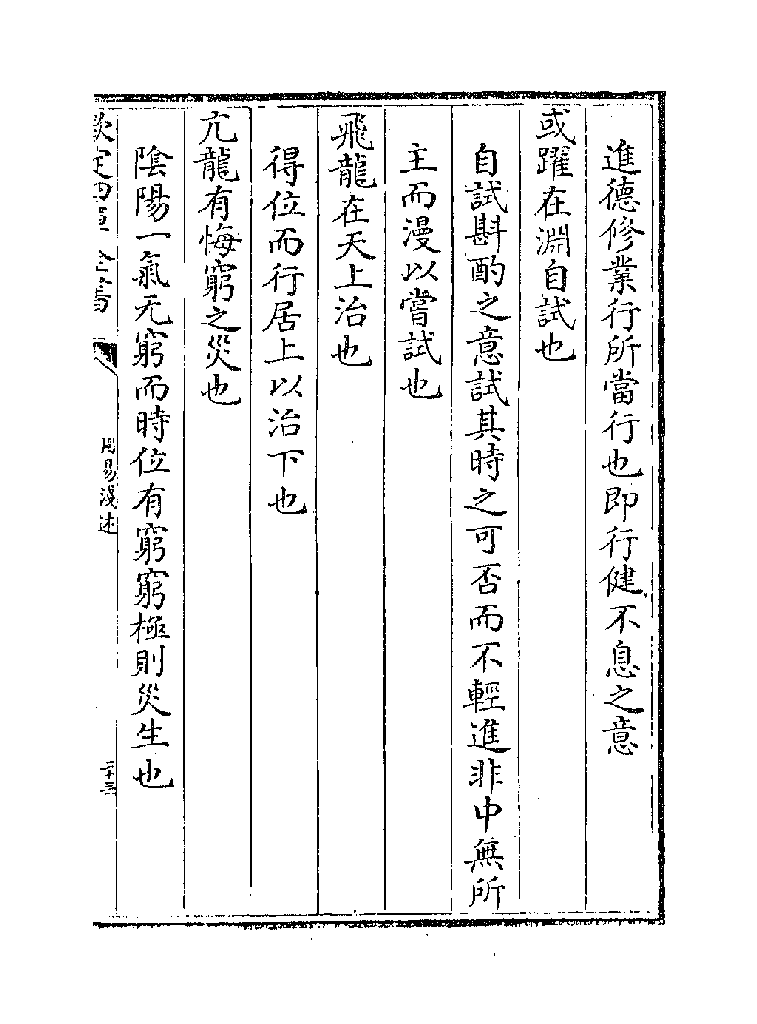 進德修業行所當行也即行健不息之意
或躍在淵自試也
自試斟酌之意試其時之可否而不輕進非中無所
主而漫以嘗試也
飛龍在天上治也
得位而行居上以治下也
亢龍有悔窮之災也
陰陽一氣无窮而時位有窮窮極則災生也
欽定四庫全書
周易淺述
二十三